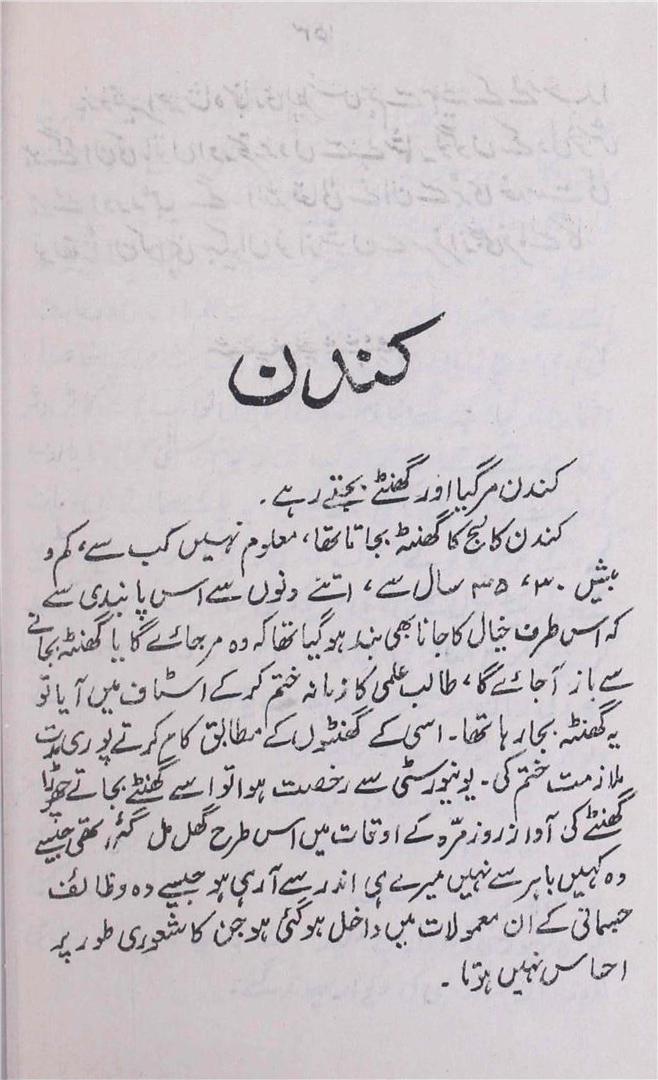 کندن
کندن مر گیا اور گھنٹے بجتے رہے۔
کندن کالج کا گھنٹہ بجاتا تھا، معلوم نہیں کب سے، کم و
بیش ۳۰، ۳۵ سال سے، اتنے دنوں سے اس پابندی سے
کہ اس طرف خیال کا جانا بھی بند ہو گیا تھا کہ وہ مر جائے گا یا گھنٹہ بجانے
سے باز آجائے گا، طالب علمی کا زمانہ ختم کر کے اسٹاف میں آیا تو
یہ گھنٹہ بجا رہا تھا۔ اسی کے گھنٹوں کے مطابق کام کرتے پوری مدت
ملازمت ختم کی۔ یونیورسٹی سے رخصت ہوا تو اسے گھنٹے بجاتے چھوڑا
گھنٹے کی آواز روزمرّہ کے اوقات میں اس طرح گھل مل گئی تھی جیسے
وہ کہیں باہر سے نہیں میرے ہی اندر سے آرہی ہو جیسے وہ وظائف
جسمانی کے ان معمولات میں داخل ہو گئی ہو جن کا شعوری طور پر
احساس نہیں ہوتا۔